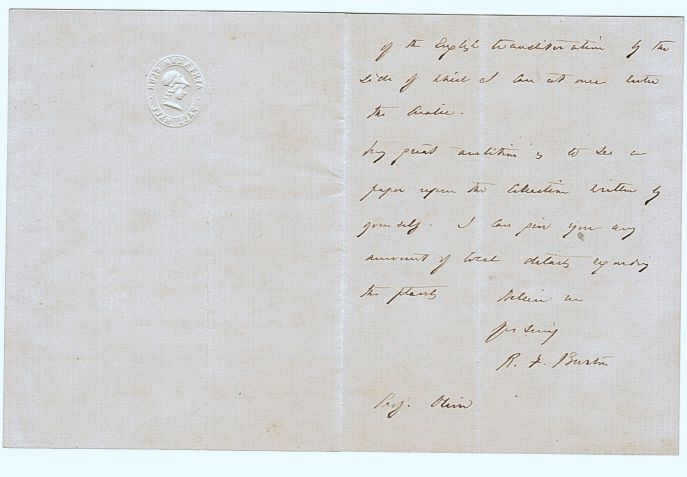 of the English transliteration by the
side of which I can at once enter
the Arabic.
My great ambition is to see a
paper upon the Collection written by
yourself. I can give you any
amount of local details regarding
the plants
Believe me
R. F. Burton
Prof. Oliver